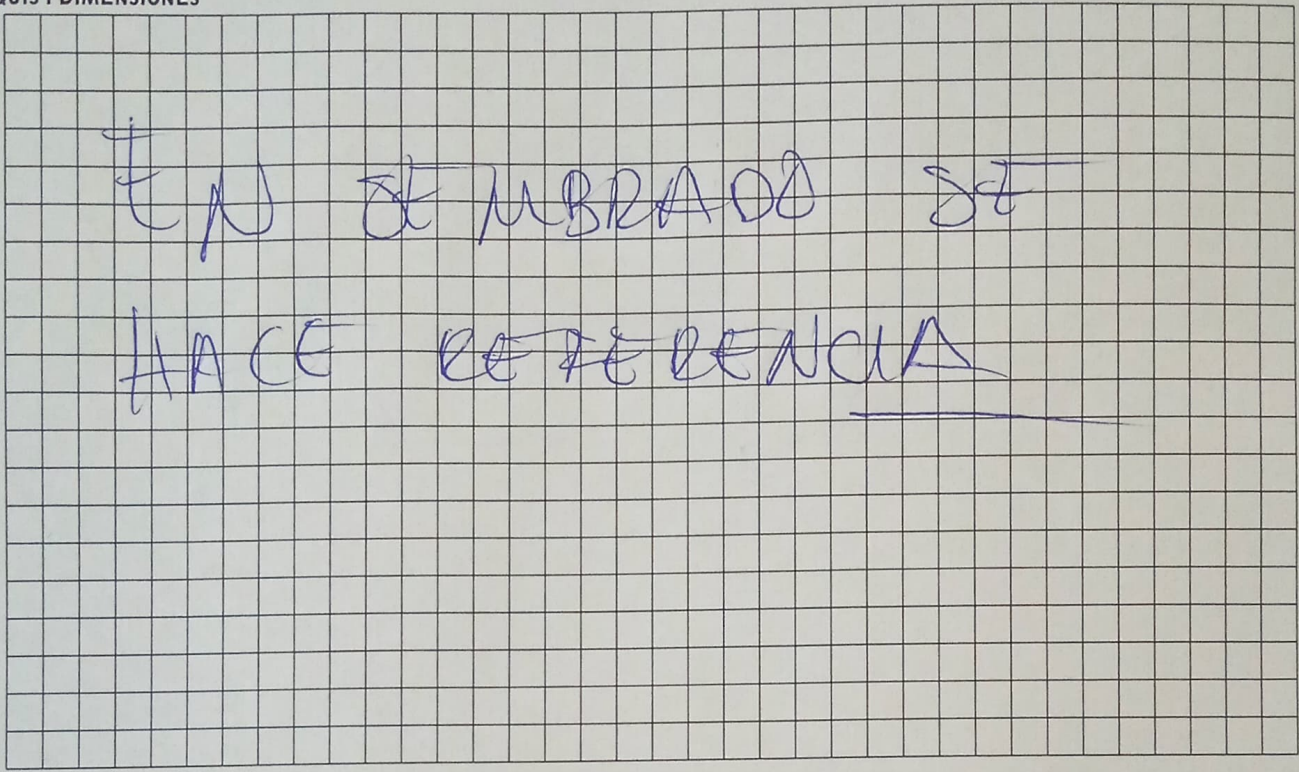 QUIS Y DIMENSIONES
EN SEMBRADO SE
HACE REFERENCIA